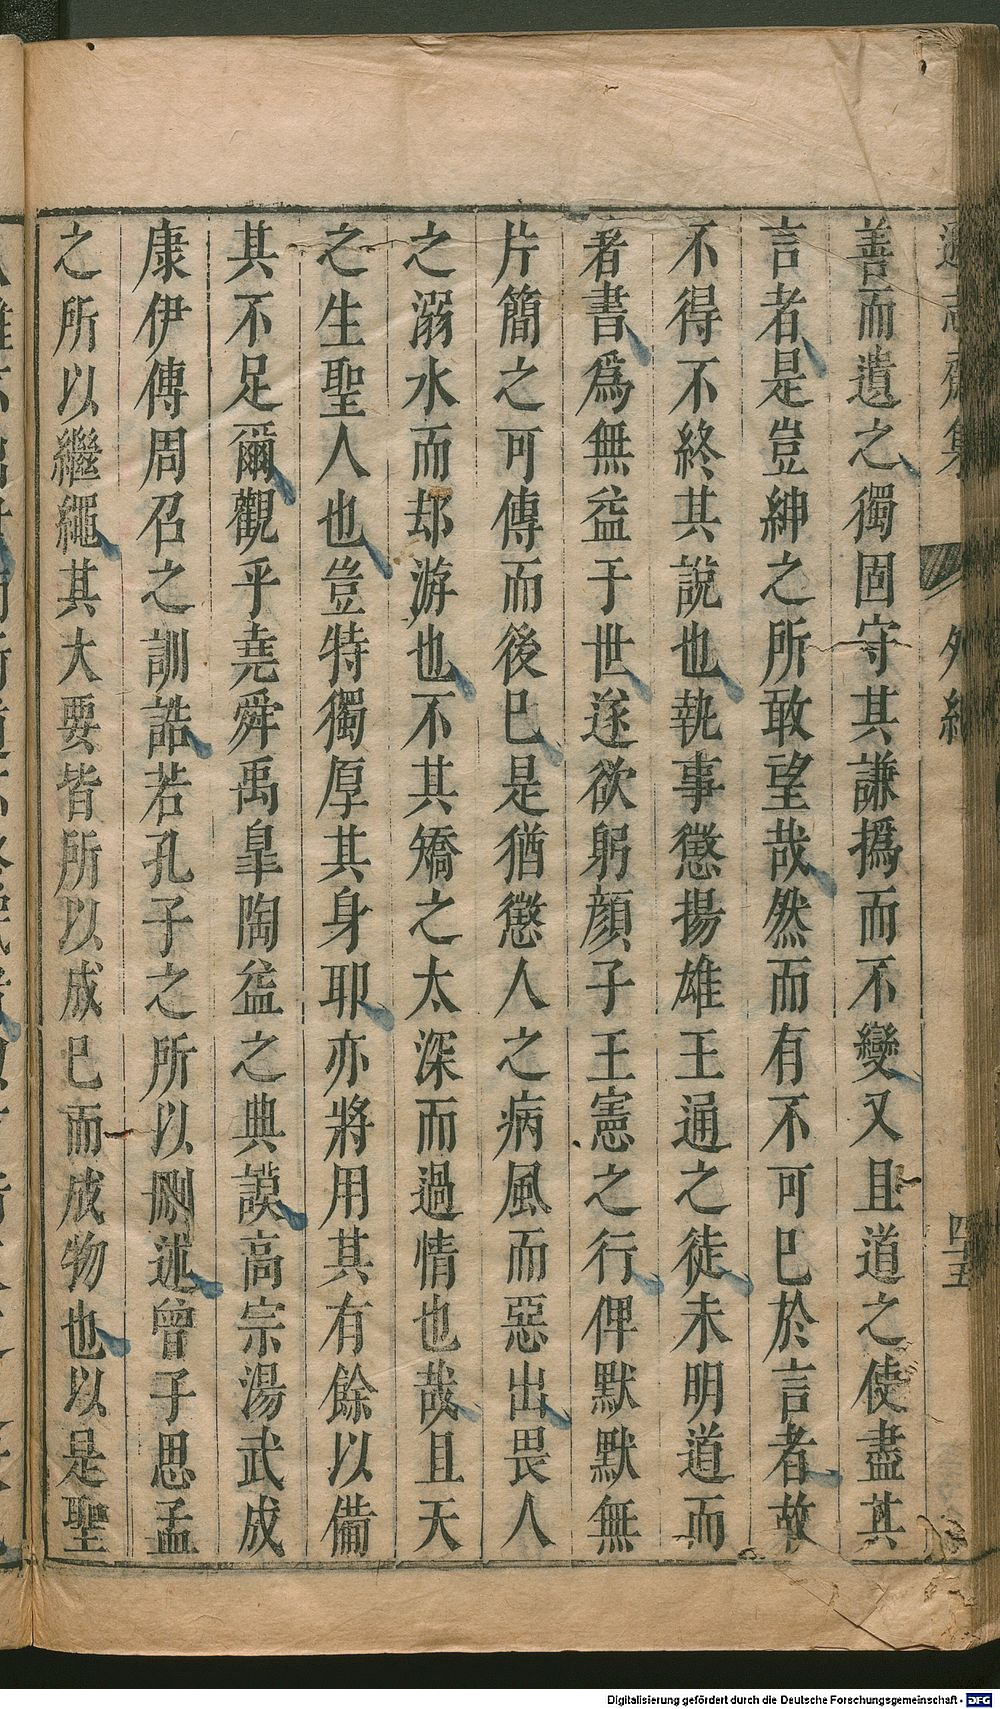 遜志齋集 外紀 四五
善而遺之獨固守其謙撝而不變又且道之使盡其
言者是豈紳之所敢望哉然而有不可已於言者故
不得不終其說也執事懲揚雄王通之徒未明道而
著書爲無益于世遂欲躬顏子王憲之行俾默默無
片簡之可傳而後已是猶懲人之病風而惡出畏人
之溺水而却游也不其矯之太深而過情也哉且天
之生聖人也豈特獨厚其身耶亦將用其有餘以備
其不足爾觀乎堯舜禹皐陶益之典謨高宗湯武成
康伊傅周召之訓誥若孔子之所以刪述曾子思孟
之所以繼繩其大要皆所以成已而成物也以是聖
Digitalisierung gefördert durch die Deutsche Forschungsgemeinschaft - DFG